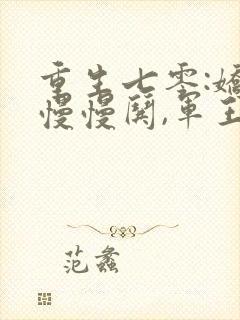 重生七零:嬌
慢慢鬨,軍王
范蠡